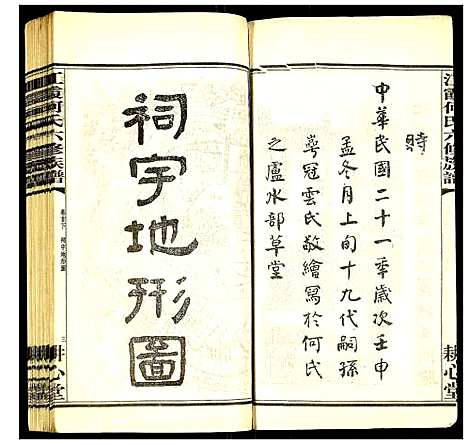 江霞何氏六修族譜
耕心堂
時
中華民國二十一年歲次壬申
孟冬月上旬十九代嗣孫
冠雲氏敬繪寫於何氏
之廬水部草堂
祠宇地形圖
江霞何氏六修族譜
卷首下
耕心堂